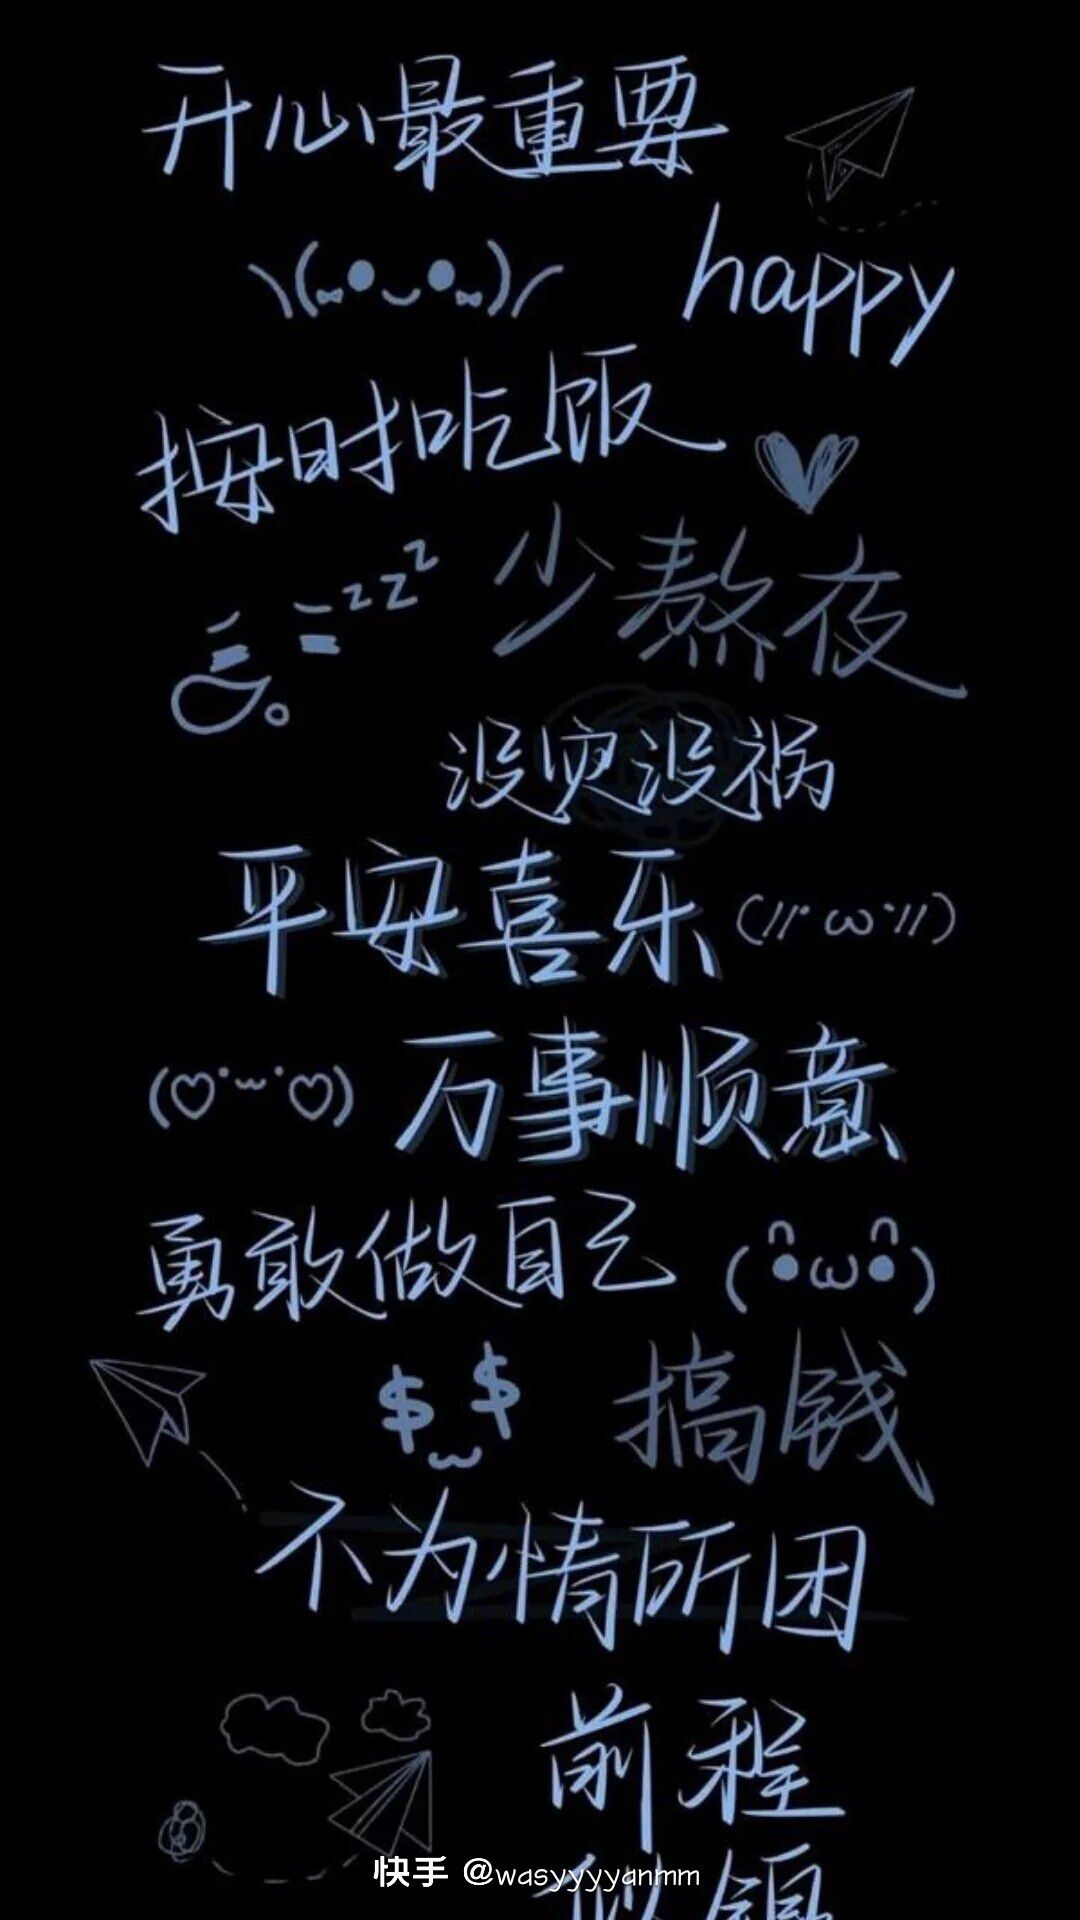 开心最重要
happy
按时吃饭
zzz 少熬夜
没灾没祸
平安喜乐
万事顺意
勇敢做自己
$ $ 搞钱
不为情所困
前程
似锦
快手 @wasyyyyanmm